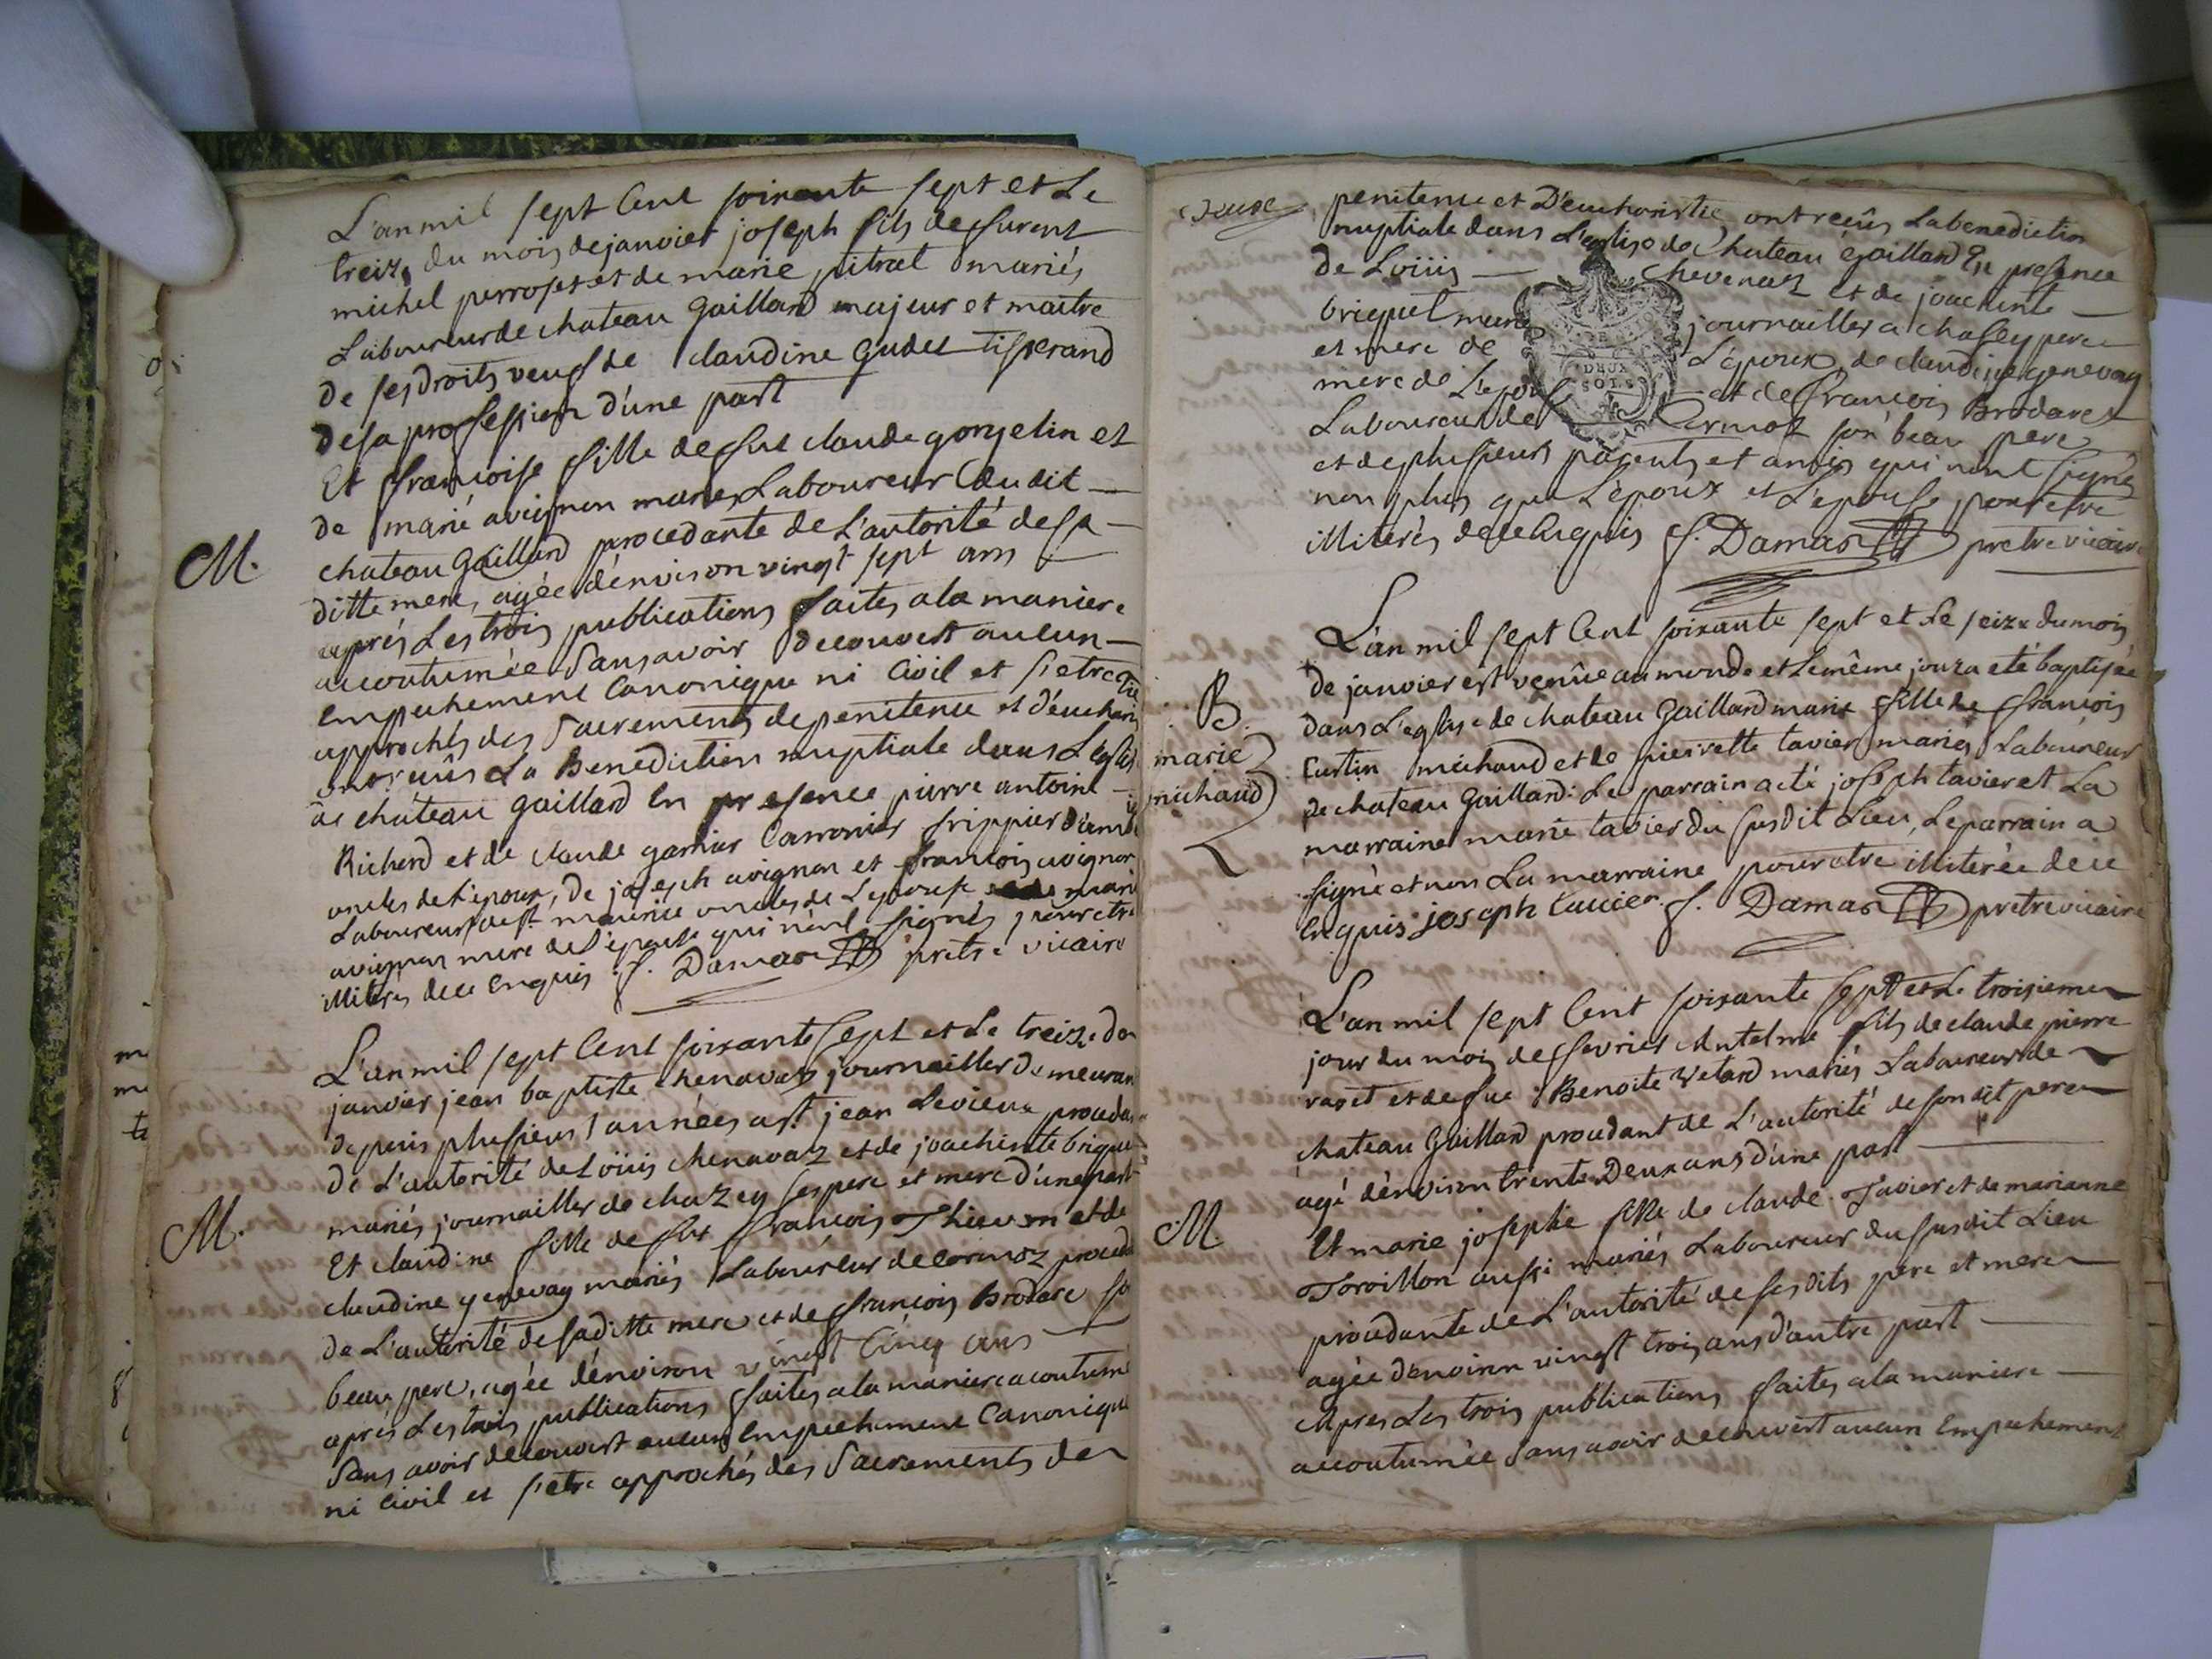 L'an mil sept Cent soixante sept et Le
treize du mois de janvier joseph fils de furent
michel perroset et de marie pitrat mariés
Laboureur de chateau Gaillard majeur et maitre
de ses droits veuf de claudine Gudet tisserand
de sa profession d'une part
Et françoise fille de fut claude gorgelin et
de marie avignon mariés Laboureur dudit
M.
chateau Gaillard procedante de L'autorité de sa
ditte mere, agée d'environ vingt sept ans
aprés Les trois publications faites a la maniere
accoutumée Sans avoir decouvert aucun
Empechement Canonique ni Civil et s'etre
approchés des Sacrements de penitence et d'euchari
ont reçûs La Benediction nuptiale dans L'eglise
de château Gaillard En presence pierre antoine
Richerd et de claude garnier frippier d'amb
oncles de l'epoux, de joseph avignon et françois avignon
Laboureurs de st maurice oncles de L'epouse marie
avignon mere de l'epouse qui n'ont signés pour etre
illiterés de ce Enquis f. Damas pretre vicaire
L'an mil sept Cent soixante Sept et Le treize de
janvier jean baptiste chenavaz journaillier demeuran
depuis plusieurs années a st jean Levieux proceda
de L'autorité de Loüis chenavaz et de joachinte brique
mariés journaillier de chazey ses pere et mere d'une part
M.
Et claudine fille de fut françois Thievon et de
claudine genevay mariés Laboureur de Cormoz proceda
de L'autorité de saditte mere et de françois Brodare so
beau pere, agée d'environ vingt Cinq ans
aprés Les trois publications faites a la maniere acoutume
Sans avoir decouvert aucun Empechement Canonique
ni Civil et s'etre approchés des Sacrements de
penitence et D'eucharistie ont reçûs La benediction
nuptiale dans L'eglise de Chateau gaillard En presence
de Loüis chevenaz et de joachinte
briquet mariés journaillier a chasey pere
et mere de L'époux, de claudine genevay
DEUX
SOLS
mere de L'epouse et de françois Brodare
Laboureur de Cormoz son beau pere
et de plusieurs parents et amis qui n'ont signé
non plus que L'époux et L'epouse pour etre
illiterés de ce Enquis f. Damas pretre vicaire
L'an mil sept Cent soixante sept et Le seize du mois
de janvier est venûe au monde et Le même jour a eté baptisée
B.
marie
michaud
dans L'eglise de chateau Gaillard marie fille de françois
Curtin michaud et de pierrette tavier mariés Laboureur
de chateau Gaillard: Le parrain a eté joseph tavier et La
marraine marie tavier du susdit Lieu, Le parrain a
signé et non La marraine pour etre illiterée de ce
Enquis joseph tavier f. Damas pretre vicaire
L'an mil sept Cent soixante sept et Le troisieme
jour du mois de fevrier Antelme fils de claude pierre
ravet et de fue Benoite Vetard mariés Laboureur de
chateau Gaillard procedant de L'autorité de son dit pere
agé d'environ trente Deux ans d'une part
M.
Et marie josephte fille de claude Tavier et de marianne
Toroillon aussi mariés Laboureur du susdit Lieu
procedante de L'autorité de ses dits pere et mere
agée d'environ vingt trois ans d'autre part
Apres Les trois publications faites a la maniere
accoutumée Sans avoir decouvert aucun Empechement